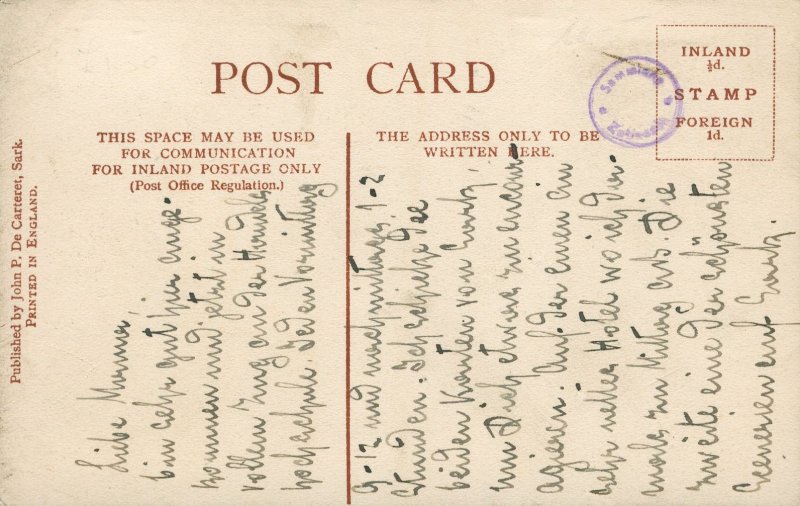 POST CARD
THIS SPACE MAY BE USED
FOR COMMUNICATION
FOR INLAND POSTAGE ONLY
(Post Office Regulation.)
THE ADDRESS ONLY TO BE
WRITTEN HERE.
INLAND
½d.
STAMP
FOREIGN
1d.
Sammlung
Published by John P. De Carteret, Sark.
PRINTED IN ENGLAND.
Liebe Mama,
bin sehr gut hier ange-
kommen und jetzt in
vollem Zug an der Handels
hochschule. Jeden Vormittag
9-12 und nachmittags 1-2
Stunden. Ich schicke Dir
beiden Karten von Sark,
um Dich etwas zu
Auf der einen ein
sehr nettes Hotel wo ich
mals zu Mittag ass. Die
zweite eine der schönsten
Scenerien auf Sark.